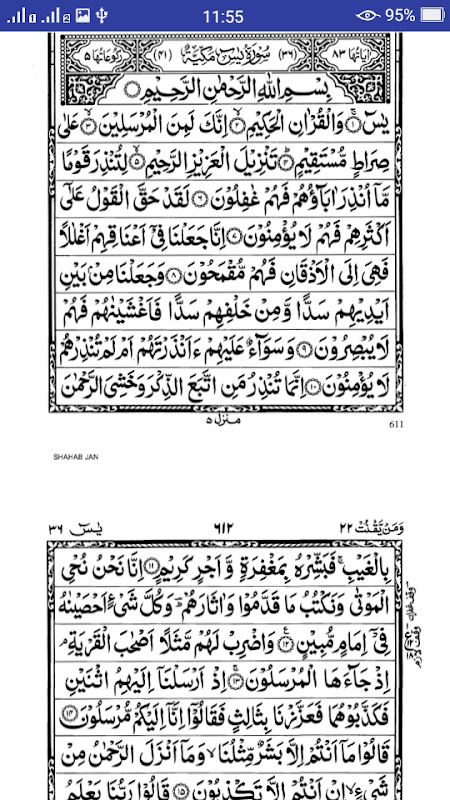 11:55
95%
اٰیاتها ٨٣
(٣٦) سُوْرَةُ يٰسٓ مَكِّيَّةٌ (٤١)
رکوعاتها ٥
بِسْمِ اللّٰهِ الرَّحْمٰنِ الرَّحِيْمِ
يٰسٓ ۝١ وَالْقُرْاٰنِ الْحَكِيْمِ ۝٢ اِنَّكَ لَمِنَ الْمُرْسَلِيْنَ ۝٣ عَلٰى
صِرَاطٍ مُّسْتَقِيْمٍ ۝٤ تَنْزِيْلَ الْعَزِيْزِ الرَّحِيْمِ ۝٥ لِتُنْذِرَ قَوْمًا
مَّآ اُنْذِرَ اٰبَآؤُهُمْ فَهُمْ غٰفِلُوْنَ ۝٦ لَقَدْ حَقَّ الْقَوْلُ عَلٰٓى
اَكْثَرِهِمْ فَهُمْ لَا يُؤْمِنُوْنَ ۝٧ اِنَّا جَعَلْنَا فِيْٓ اَعْنَاقِهِمْ اَغْلٰلًا
فَهِيَ اِلَى الْاَذْقَانِ فَهُمْ مُّقْمَحُوْنَ ۝٨ وَجَعَلْنَا مِنْۢ بَيْنِ
اَيْدِيْهِمْ سَدًّا وَّمِنْ خَلْفِهِمْ سَدًّا فَاَغْشَيْنٰهُمْ فَهُمْ
لَا يُبْصِرُوْنَ ۝٩ وَسَوَآءٌ عَلَيْهِمْ ءَاَنْذَرْتَهُمْ اَمْ لَمْ تُنْذِرْهُمْ
لَا يُؤْمِنُوْنَ ۝١٠ اِنَّمَا تُنْذِرُ مَنِ اتَّبَعَ الذِّكْرَ وَخَشِيَ الرَّحْمٰنَ
منزل ٥
611
SHAHAB JAN
وَمَنْ يَّقْنُتْ ٢٢
٦١٢
يٰسٓ ٣٦
بِالْغَيْبِ ۚ فَبَشِّرْهُ بِمَغْفِرَةٍ وَّاَجْرٍ كَرِيْمٍ ۝١١ اِنَّا نَحْنُ نُحْيِ
الْمَوْتٰى وَنَكْتُبُ مَا قَدَّمُوْا وَاٰثَارَهُمْ ؕ وَكُلَّ شَيْءٍ اَحْصَيْنٰهُ
فِيْٓ اِمَامٍ مُّبِيْنٍ ۝١٢ وَاضْرِبْ لَهُمْ مَّثَلًا اَصْحٰبَ الْقَرْيَةِ ۘ
اِذْ جَآءَهَا الْمُرْسَلُوْنَ ۝١٣ اِذْ اَرْسَلْنَآ اِلَيْهِمُ اثْنَيْنِ
فَكَذَّبُوْهُمَا فَعَزَّزْنَا بِثَالِثٍ فَقَالُوْٓا اِنَّآ اِلَيْكُمْ مُّرْسَلُوْنَ ۝١٤
قَالُوْا مَآ اَنْتُمْ اِلَّا بَشَرٌ مِّثْلُنَا ۙ وَمَآ اَنْزَلَ الرَّحْمٰنُ مِنْ
شَيْءٍ ۙ اِنْ اَنْتُمْ اِلَّا تَكْذِبُوْنَ ۝١٥ قَالُوْا رَبُّنَا يَعْلَمُ